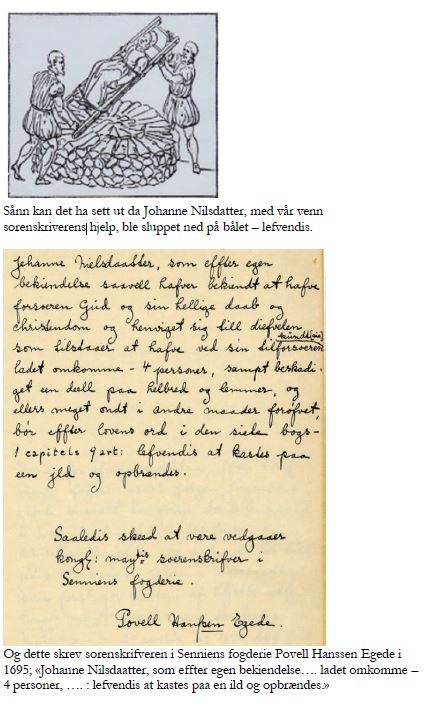 Sånn kan det ha sett ut da Johanne Nilsdatter, med vår venn
sorenskriverens hjelp, ble sluppet ned på bålet – lefvendis.
Johanne Nielsdaatter, som effter egen
bekiendelse saavell hafver bekiendt at hafve
forsvoren Gud og sin hellige daab og
christendom og henviget sig till diefvelen
kundt[nis]
som tilstaaer at hafve ved sin tilforsveren
ladet omkomme – 4 personer, sampt beskadi-
get een deell paa helbred og lemmer, og
ellers meget ondt i andre maader forøfvet,
bør effter lovens ord i den siete bogs-
1 capitels 9 art: lefvendis at kastes paa
een jld og opbrændes.
Saaledis skeed at være vedgaaer
kongl: maytis soerenskrifver i
Senniens fogderie.
Povell Hanssen Egede.
Og dette skrev sorenskriveren i Senniens fogderie Povell Hanssen Egede i
1695; «Johanne Nilsdaatter, som effter egen bekiendelse…. ladet omkomme –
4 personer, …. : lefvendis at kastes paa en ild og opbrændes.»